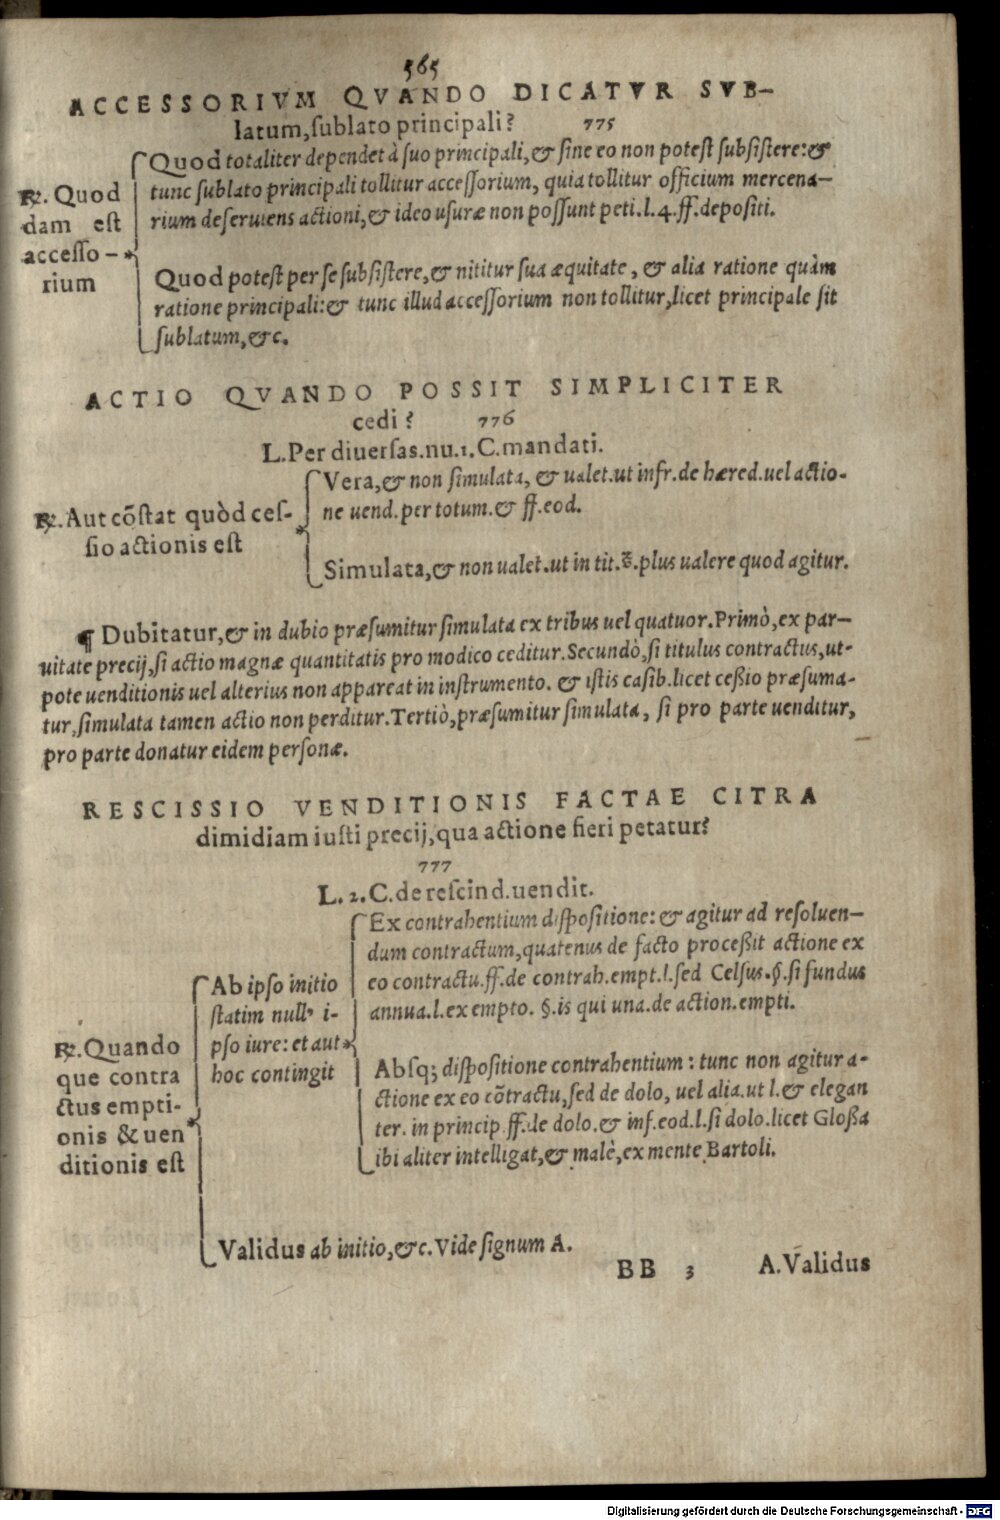 565
ACCESSORIVM QVANDO DICATVR SVB-
latum, sublato principali? 775
℞. Quod
dam est
accesso-
rium
Quod totaliter dependet à suo principali, & sine eo non potest subsistere: &
tunc sublato principali tollitur accessorium, quia tollitur officium mercena-
rium deseruiens actioni, & ideo usuræ non possunt peti. l. 4. ff. depositi.
Quod potest per se subsistere, & nititur sua æquitate, & alia ratione quàm
ratione principali: & tunc illud accessorium non tollitur, licet principale sit
sublatum, &c.
ACTIO QVANDO POSSIT SIMPLICITER
cedi? 776
L. Per diuersas. nu. 1. C. mandati.
℞. Aut cōstat quòd ces-
sio actionis est
Vera, & non simulata, & ualet. ut infr. de hæred. uel actio-
ne uend. per totum. & ff. eod.
Simulata, & non ualet. ut in tit. C. plus ualere quod agitur.
¶ Dubitatur, & in dubio præsumitur simulata ex tribus uel quatuor. Primò, ex par-
uitate precij, si actio magnæ quantitatis pro modico ceditur. Secundò, si titulus contractus, ut-
pote uenditionis uel alterius non appareat in instrumento. & istis casib. licet ceßio præsuma-
tur, simulata tamen actio non perditur. Tertiò, præsumitur simulata, si pro parte uenditur,
pro parte donatur eidem personæ.
RESCISSIO VENDITIONIS FACTAE CITRA
dimidiam iusti precij, qua actione fieri petatur?
777
L. 2. C. de rescind. uendit.
℞. Quando
que contra
ctus empti-
onis & uen
ditionis est
Ab ipso initio
statim nullꝰ i-
pso iure: et aut
hoc contingit
Ex contrahentium dispositione: & agitur ad resoluen-
dum contractum, quatenus de facto proceßit actione ex
eo contractu. ff. de contrah. empt. l. sed Celsus. §. si fundus
annua. l. ex empto. §. is qui una. de action. empti.
Absq; dispositione contrahentium: tunc non agitur a-
ctione ex eo cōtractu, sed de dolo, uel alia. ut l. & elegan
ter. in princip. ff. de dolo. & inf. eod. l. si dolo. licet Gloßa
ibi aliter intelligat, & malè, ex mente Bartoli.
Validus ab initio, &c. Vide signum A.
BB 3 A. Validus
Digitalisierung gefördert durch die Deutsche Forschungsgemeinschaft - DFG